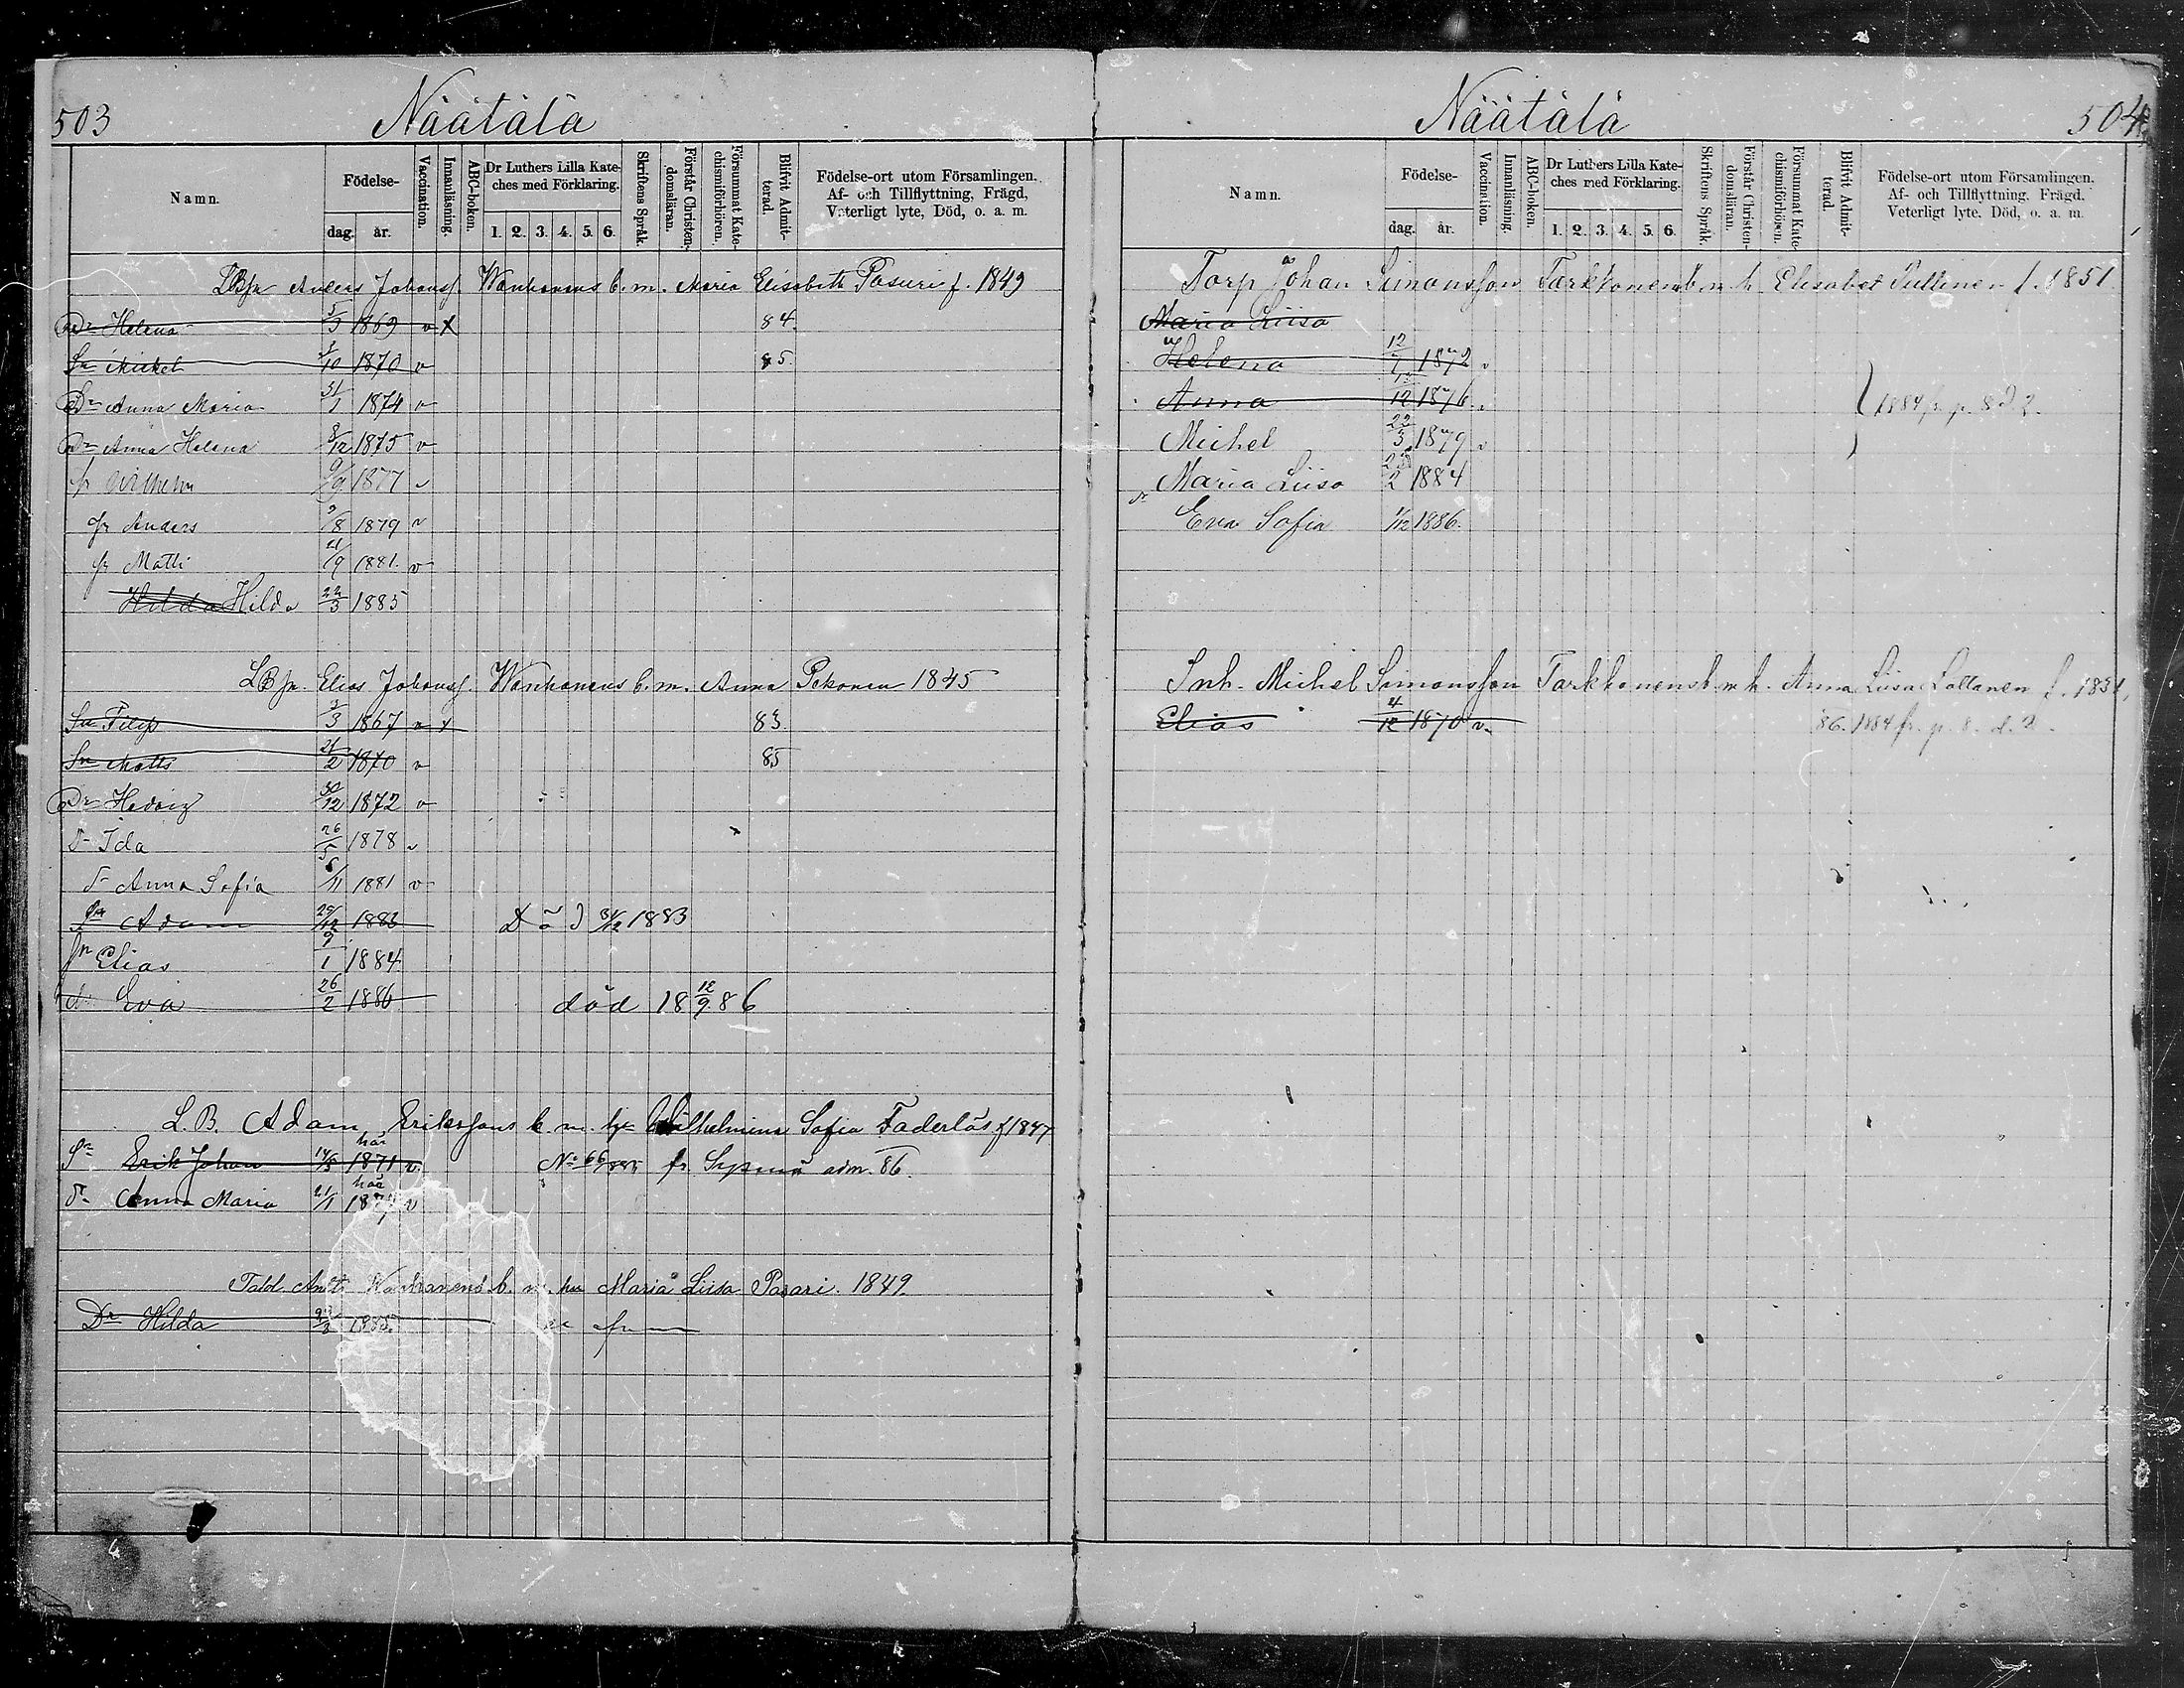 503 Näätälä
Namn. Födelse- dag. år. Vaccination. Innanläsning. ABC-boken. Dr Luthers Lilla Kateches med Förklaring. 1. 2. 3. 4. 5. 6. Skriftens Språk. Förstår Christendomsläran. Försummat Katechismiförhören. Blifvit Admitterad. Födelse-ort utom Församlingen. Af- och Tillflyttning, Frägd, Veterligt lyte, Död, o. a. m.
Anders Johanss. Wanhanens b. m. Maria Elisabeth Pasuri f. 1849
Dr Helena 5/3 1869 v x 84.
Sn Mickel /10 1870 v 85.
Dr Anna Maria 31/1 1874 v
Dr Anna Helena 8/12 1875 v
Wilhelm 9/9 1877 v
Anders /8 1879 v
Matti 21/9 1881. v
Hilda Hilda 22/3 1885
Elias Johanss. Wanhanens b. m. Anna Pekonen 1845
Sn Filip /3 1867 v x 83.
Sn Matts 21/2 1870 v 85
Dr Hedvig 30/12 1872 v
d- Ida 26/5 1878 v
d- Anna Sofia 6/11 1881 v
Sn Adam 29/12 1883 Död 31/12 1883
Sn Elias 9/1 1884
dr Eva 26/2 1886 död 18 12/9 86
L. B. Adam Erikssons b. m. Wilhelmina Sofia Faderlös f 1847
här
Erik Johan 14/5 1871 v. No 66/885 fr. Sysmä adm. 86.
här
Anna Maria 21/1 v
Antti Wanhanens b. m. Maria Liisa Pasari. 1849.
Dr Hilda 1885.
Näätälä 504
Namn. Födelse- dag. år. Vaccination. Innanläsning. ABC-boken. Dr Luthers Lilla Kateches med Förklaring. 1. 2. 3. 4. 5. 6. Skriftens Språk. Förstår Christendomsläran. Försummat Katechismiförhören. Blifvit Admitterad. Födelse-ort utom Församlingen. Af- och Tillflyttning. Frägd. Veterligt lyte. Död, o. a. m.
Torp Johan Simonsson Tarkkonens b. m. h. Elisabet Pullinen f. 1851
Maria Liisa
Helena 12/7 1872 v
Anna /12 1876 v 1884 fr. p.
Michel 22/3 1879 v
Maria Liisa 2 1884
Eva Sofia 1/12 1886.
Inh. Michel Simonsson Tarkkonens b. m. h. Anna Liisa
Elias 4/12 1870 v. 86. 1884 fr. p.